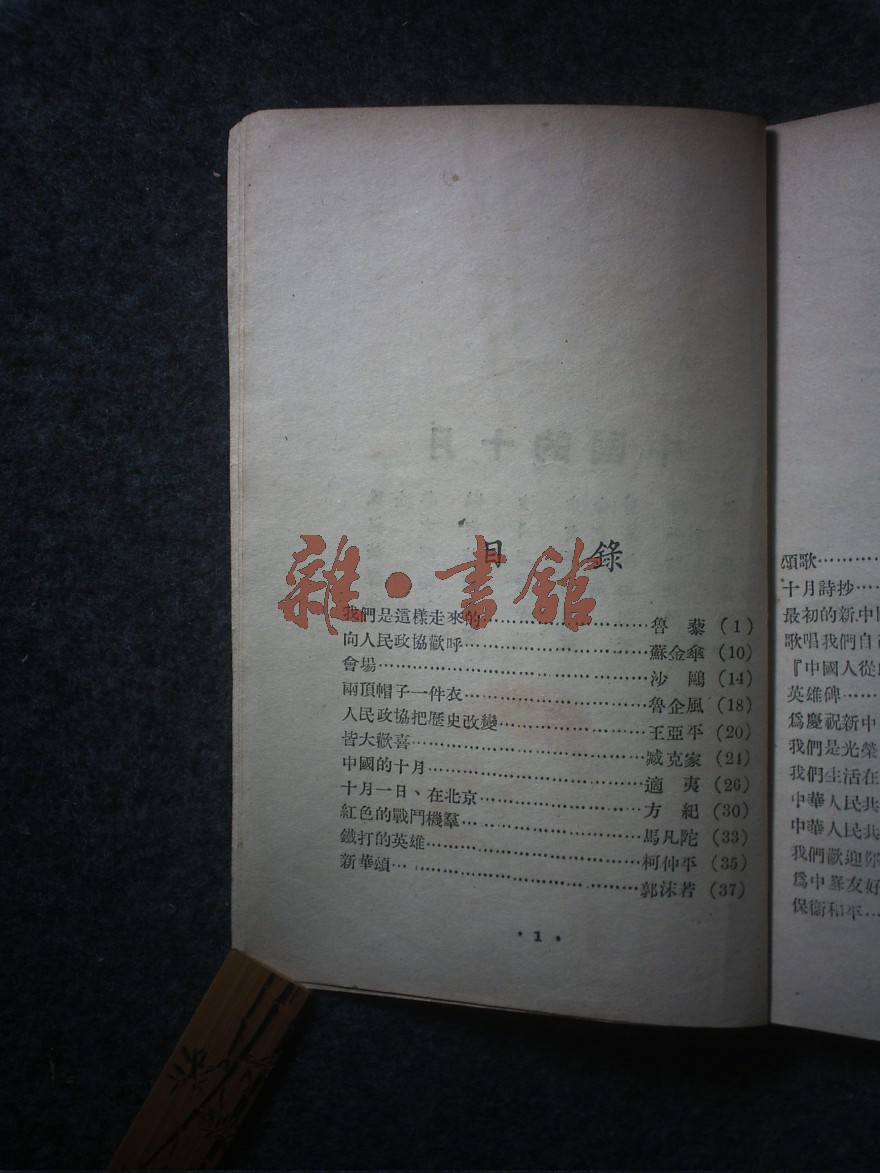 目錄
雜·書舘
我們是這樣走來的……魯藜(1)
向人民政協歡呼……蘇金傘(10)
會場……沙鷗(14)
兩頂帽子一件衣……魯企風(18)
人民政協把歷史改變……王亞平(20)
皆大歡喜……臧克家(24)
中國的十月……適夷(26)
十月一日、在北京……方紀(30)
紅色的戰鬥機羣……馬凡陀(33)
鐵打的英雄……柯仲平(35)
新華頌……郭沫若(37)
·1·
頌歌……
十月詩抄……
最初的新中
歌唱我們自
『中國人從
英雄碑……
爲慶祝新中
我們是光榮
我們生活在
中華人民共
中華人民共
我們歡迎你
爲中蘇友好
保衞和平…